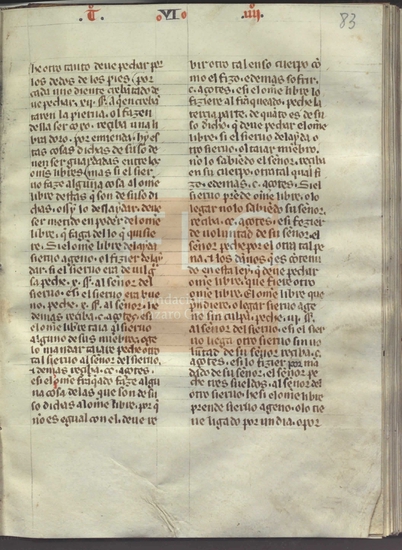 T VI iiij 83
he otro tanto deue pechar por
los dedos de los pies, por
cada uno diente crebantado de
ue pechar .xij. ss. a quen creba
taren la pierna, o
della ser coxo, reciba una li
bra doro, por emienda, hy es
tas cosas dichas de suso de
uen ser guardadas entre los
omes libres, mas si el sier
uo faze alguna cosa al ome
libre destas que son de suso di
chas, o si lo desfaydar, deue
ser metido en poder del ome
libre, que faga del lo que quisie
re. Si el ome libre
sieruo ageno, o
dar, si el sieruo era de
sa peche .x. ss. al señor del
sieruo, e si el sieruo era bue
no, peche .x. ss. al señor, he
demas reciba .c. açotes, e si
el ome libre taia al sieruo
alguno de sus miebros, o ge
lo mandar taiar, peche otro
tal sieruo al señor del sieruo,
e demas reciba .cc. açotes,
e si el ome faze algu
na cosa de las que son de su
so dichas al ome libre, por que
no es egual con el, deue re
uir otro tal en so cuerpo co
mo el fizo, e demas sofrir
.c. açotes, e si el ome libre lo
fiziere al franqueado, peche la
tercia parte, de quanto es de su
so dicho, que deue pechar el ome
libre, si el sieruo
otro sieruo, ol taiar miebro,
no lo sabiedo el señor, reciba
en su cuerpo, otra tal qual fi
zo, e demas .c. açotes, Si el
sieruo prede ome libre, o lo
legar no lo sabiedo su señor,
reciba .cc. açotes, e si fizier
de voluntad de su señor, el
señor peche por el otra tal pe
na, e los danos que es conteni
do en esta ley, que deue pechar
ome libre, que fiere otro
ome libre. El ome libre que
pudiere, o legar sieruo age
no sin culpa, peche .iij. ss.
al señor del sieruo, e si el sier
uo liega otro sieruo sin uo
lutad de su señor reciba .c.
açotes, e si lo fizier por man
dado de su señor, el señor pe
che tres sueldos, al señor del
otro sieruo, he si el ome libre
prende sieruo ageno, o lo tie
ne ligado por un dia, o por